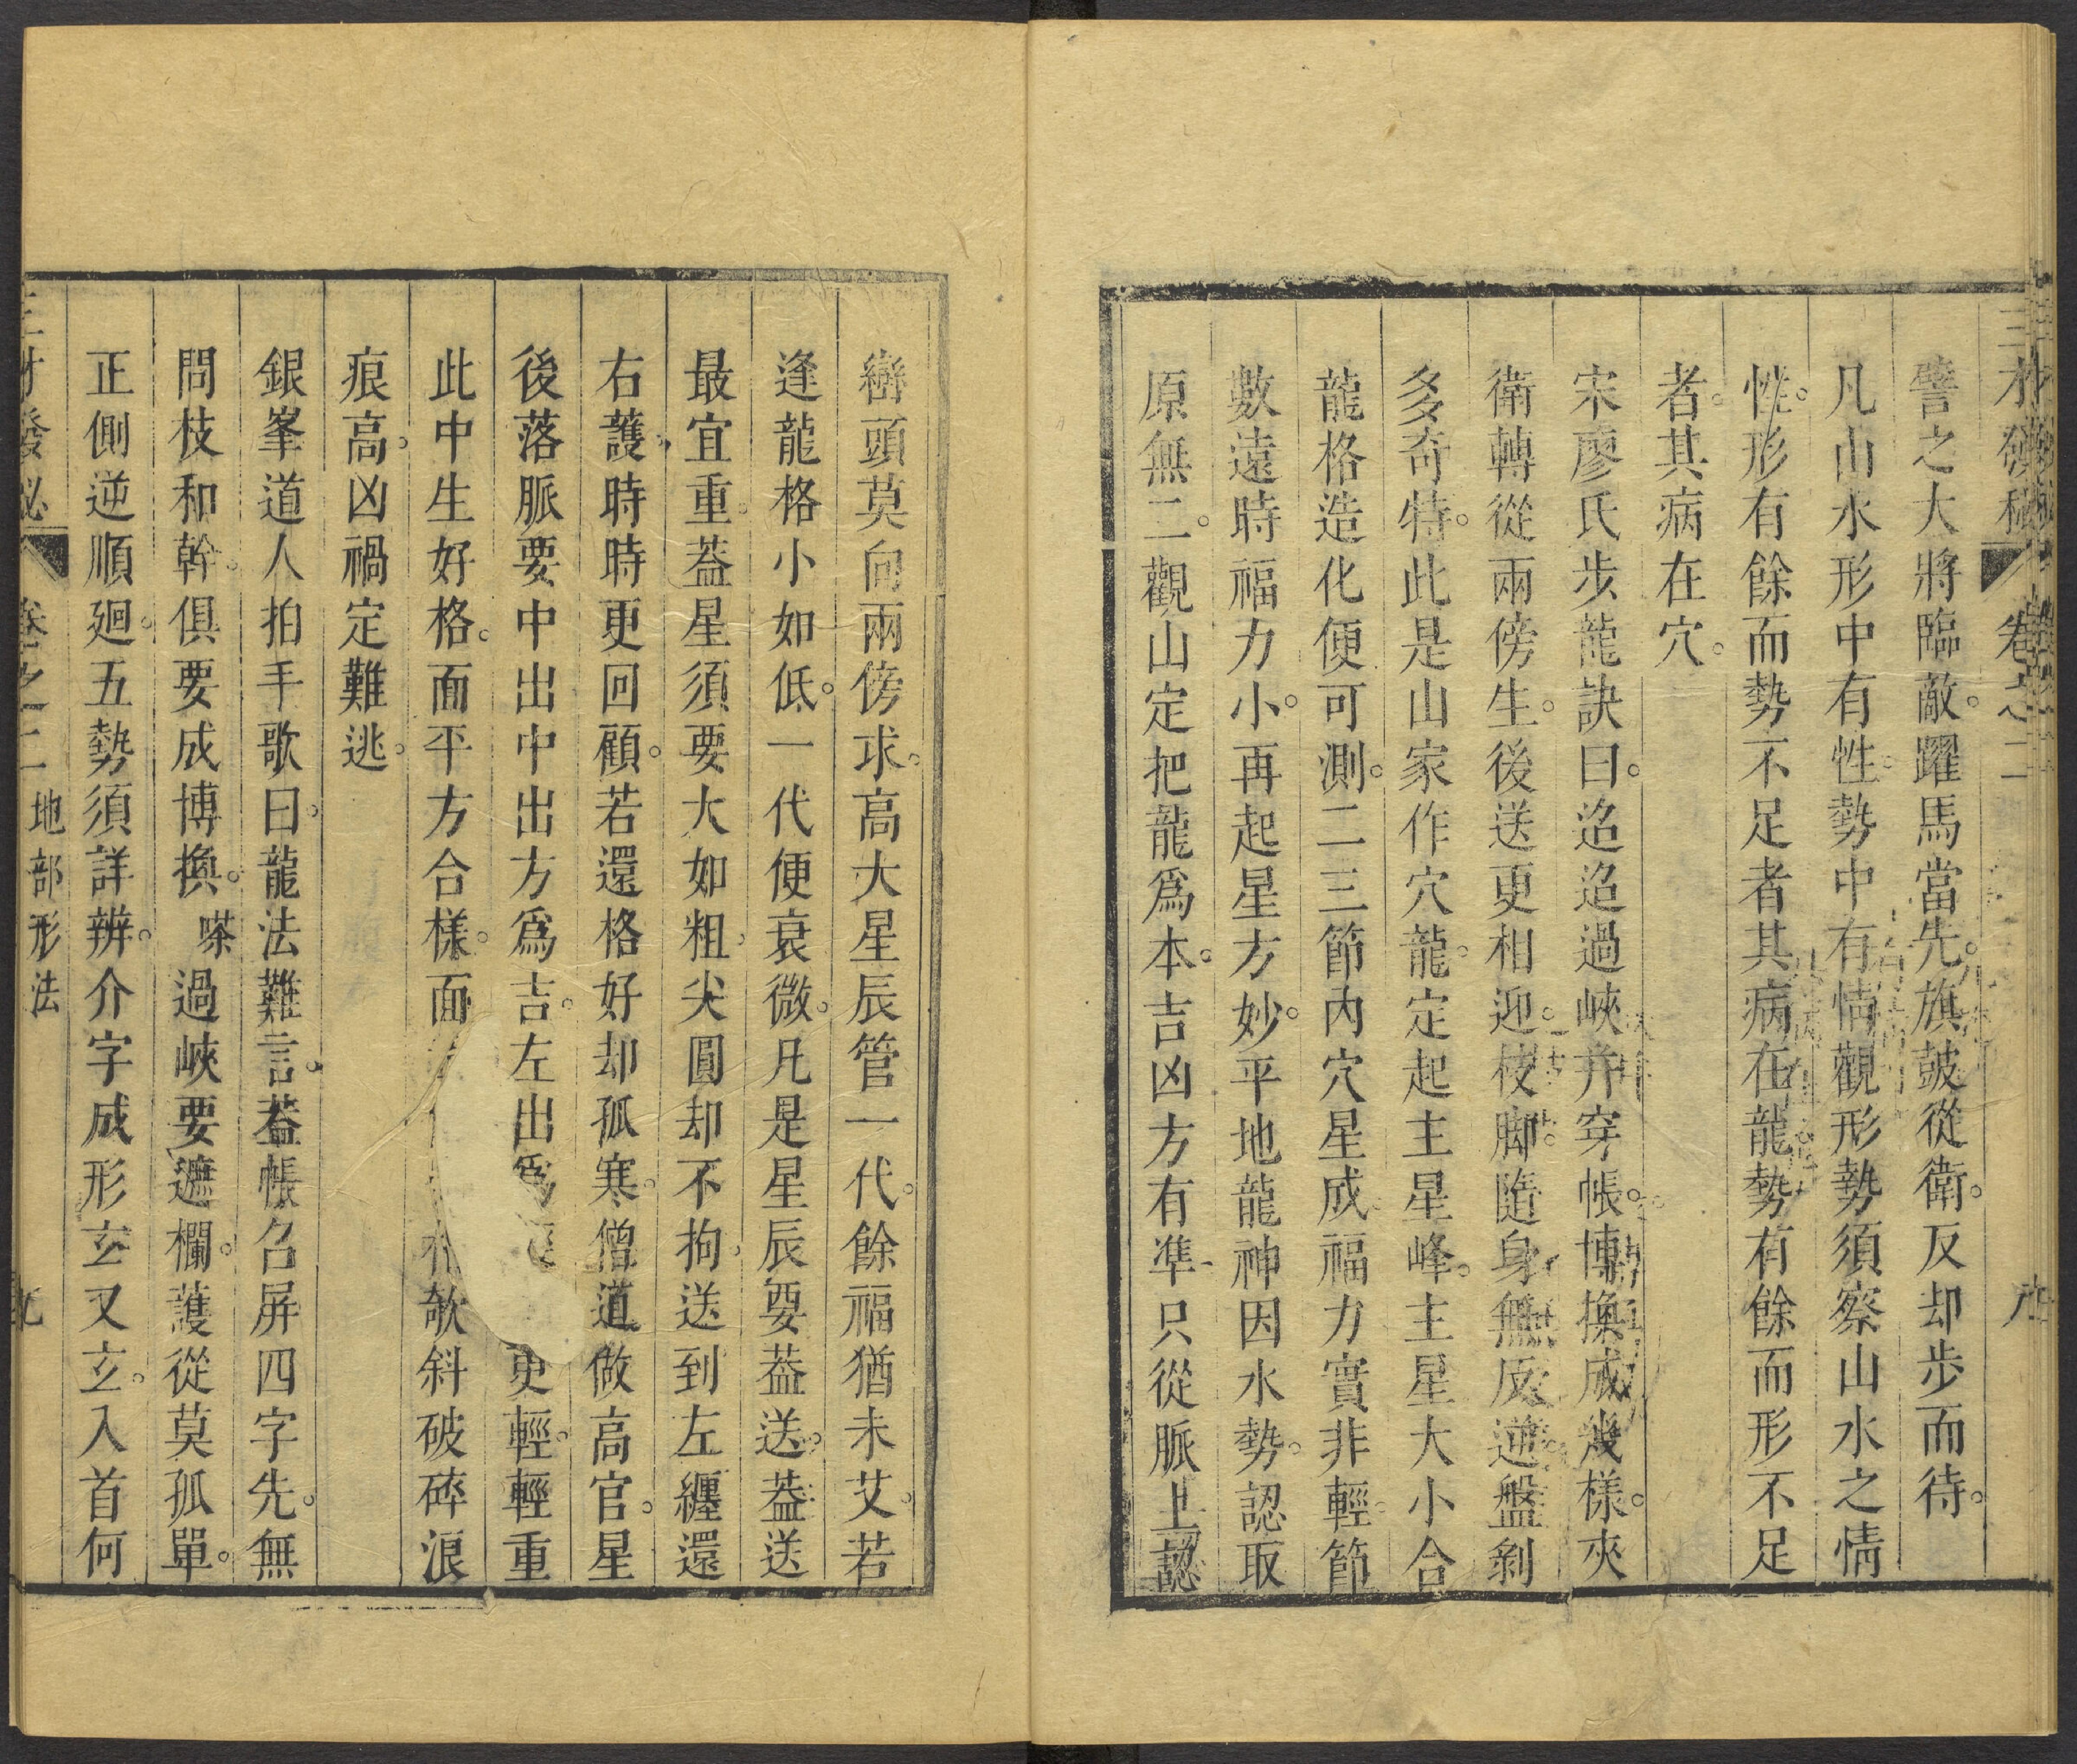 三才發秘 卷之二 九
譬之大將臨敵。躍馬當先。旗鼓從衛。反却步而待。
凡山水形中有性。勢中有情觀形勢須察山水之情
性。形有餘而勢不足者其病在龍勢有餘而形不足
者。其病在穴。
宋廖氏步龍訣曰。迢迢過峽并穿帳。博換成幾樣。夾
衛轉從兩傍生。後送更相迎。枝脚隨身無反逆。盤剝
多奇特。此是山家作穴龍。定起主星峰。主星大小合
龍格造化便可測。二三節內穴星成。福力實非輕。節
數遠時福力小。再起星方妙。平地龍神因水勢。認取
原無二。觀山定把龍爲本。吉凶方有準只從脈上認
巒頭莫向兩傍求。高大星辰管一代。餘福猶未艾。若
逢龍格小如低。一代便衰微。凡是星辰要葢送。葢送
最宜重。葢星須要大如粗。尖圓却不拘。送到左纏還
右護。時時更回顧。若還格好却孤寒。僧道做高官。星
後落脈要中出中出方爲吉。左出爲更輕。輕重
此中生好格。面平方合樣。面欹斜破碎浪
痕高。凶禍定難逃。
銀峯道人拍手歌曰。龍法難言。葢帳名屏四字先。無
問枝和幹。俱要成博換。嗏過峽要遮欄。護從莫孤單。
正側逆順廻。五勢須詳辨。介字成形玄又玄。入首何
三才發秘 卷之二 地部形法 九